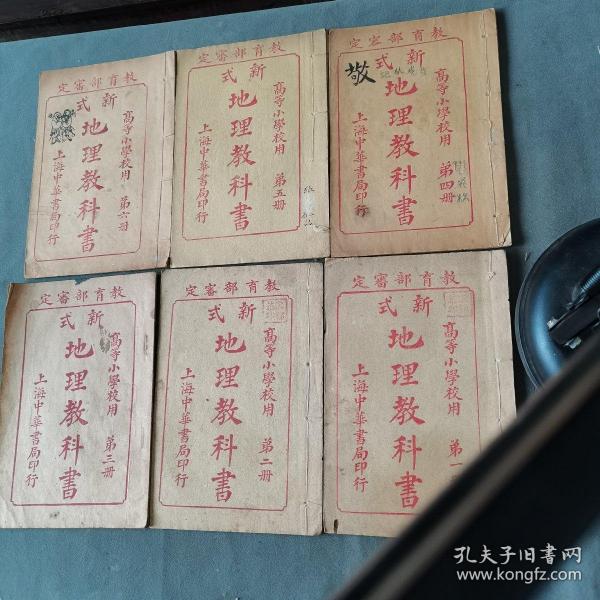 教育部審定
新式
地理教科書
高等小學校用 第六冊
上海中華書局印行
教育部審定
新式
地理教科書
高等小學校用 第五冊
上海中華書局印行
教育部審定
新式
敬
地理教科書
高等小學校用 第四冊
上海中華書局印行
教育部審定
新式
地理教科書
高等小學校用 第三冊
上海中華書局印行
教育部審定
新式
地理教科書
高等小學校用 第二冊
上海中華書局印行
教育部審定
新式
地理教科書
高等小學校用 第一
上海中華書局印行
孔夫子旧書网
www.kongfz.com